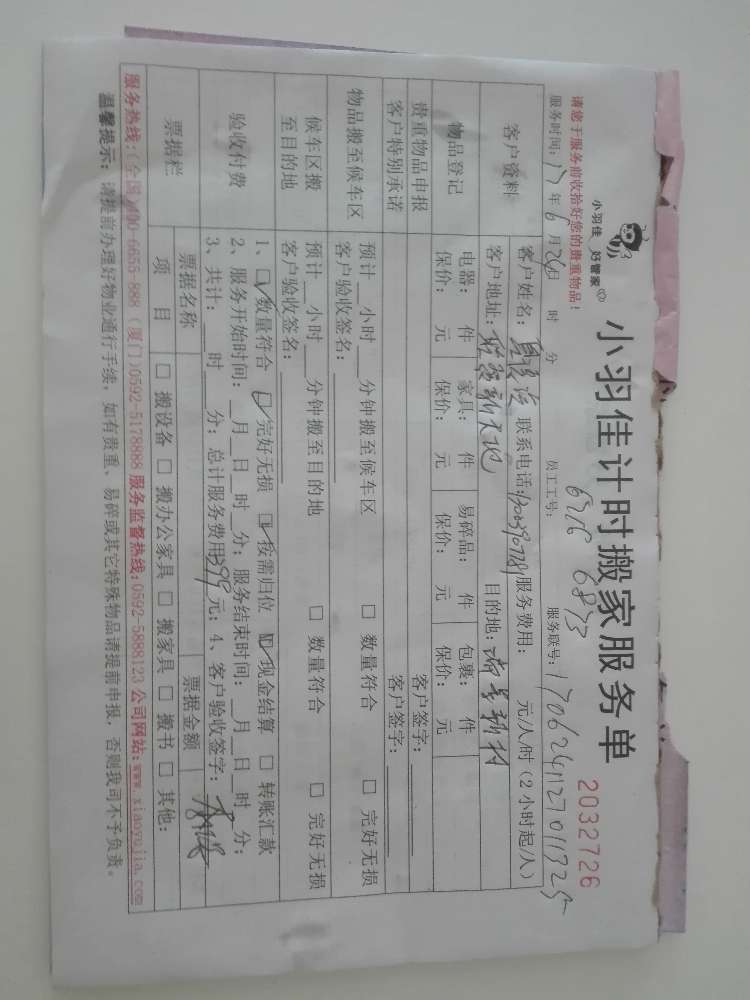 小羽佳 好管家
小羽佳计时搬家服务单
2032726
请您于服务前收拾好您的贵重物品!
6216 6873
服务时间: 17年6月24日 时 分 员工工号: 服务联号:
客户资料
客户姓名: 联系电话: 服务费用: 元/人/时 (2小时起/人)
客户地址: 新天地 目的地: 新村
物品登记
电器: 件 家具: 件 易碎品: 件 包裹: 件
保价: 元 保价: 元 保价: 元 保价: 元
贵重物品申报 客户签字:
客户特别承诺 客户签字:
物品搬至候车区
预计__小时__分钟搬至候车区 □ 数量符合 □ 完好无损
客户验收签名:
候车区搬至目的地
预计__小时__分钟搬至目的地 □ 数量符合 □ 完好无损
客户验收签名:
验收付费
1、☑数量符合 ☑完好无损 ☑按需归位 ☑现金结算 □ 转账汇款
2、服务开始时间: __月__日__时__分; 服务结束时间: __月__日__时__分;
3、共计: __时__分; 总计服务费用399元; 4、客户验收签字:
票据栏
票据名称 票据金额
项目 □ 搬设备 □ 搬办公家具 □ 搬家具 □ 搬书 □ 其他:
服务热线:(全国)400-6655-888 (厦门)0592-5178888 服务监督热线:0592-5888123 公司网站:www.xiaoyujia.com
温馨提示: 请提前办理好物业通行手续, 如有贵重、易碎或其它特殊物品请提前申报, 否则我司不予负责。